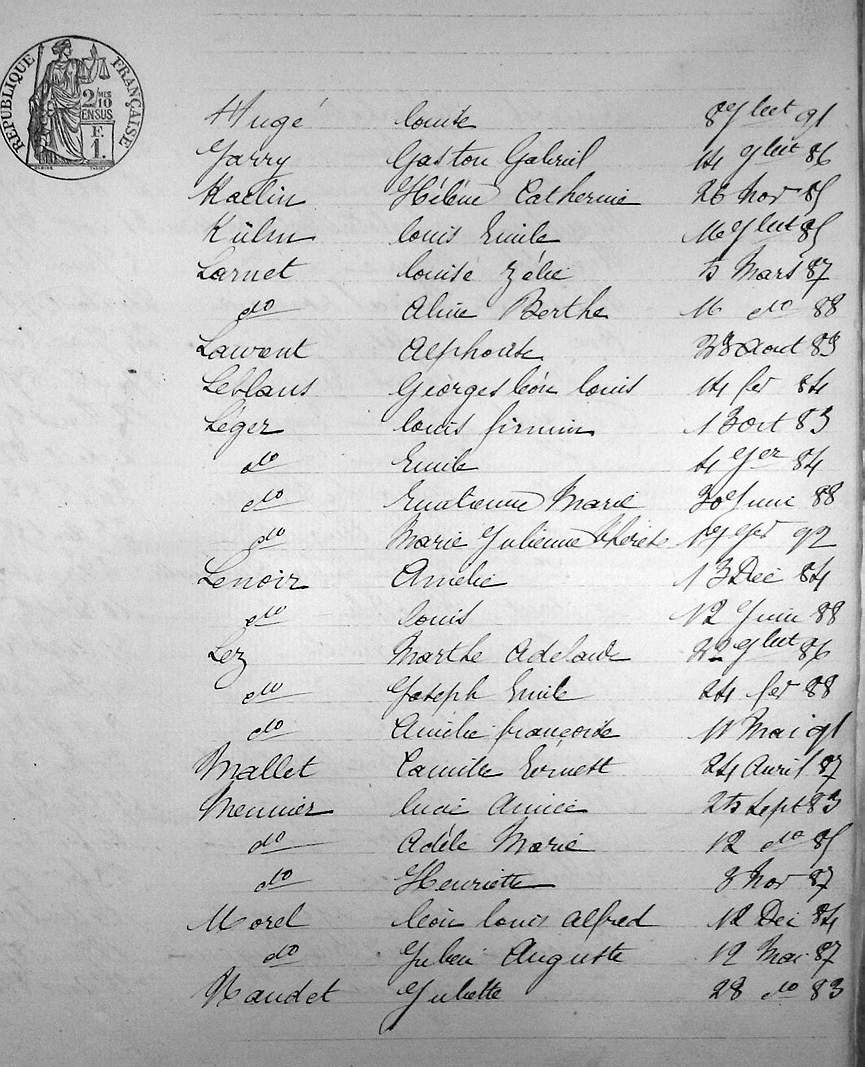 RÉPUBLIQUE FRANÇAISE
2/10 MES
EN SUS
F.
1.
Hugé Louise 8 Jlet 91
Jarry Gaston Gabriel 14 Jlet 86
Kaelin Hélène Catherine 26 Nov 85
Külm Louis Emile 16 Jlet 85
Larnet Louise Zélie 5 Mars 87
do Aline Berthe 11 do 88
Laurent Alphonse 28 Aout 83
Leblans Georges Léon Louis 14 fer 84
Léger Louis firmin 13 oct 83
do Emile 4 Jer 84
do Marie 30 Juin 88
do Marie Julienne Thérèse 19 92
Lenoir Amélie 13 Dec 84
do Louis 12 Juin 88
Lez Marthe Adelaide Jlet 86
do Joseph Emile 24 fer 88
do Amélie françoise 11 Mai 91
Mallet Camille Ernest 24 Avril 87
Meunier Lucie Amice 25 Sept 83
do Adèle Marie 12 do 85
do Henriette 3 Nov 87
Morel Léon Louis Alfred 12 Dec 84
do Julien Auguste 12 Mai 87
Naudet Juliette 28 do 83